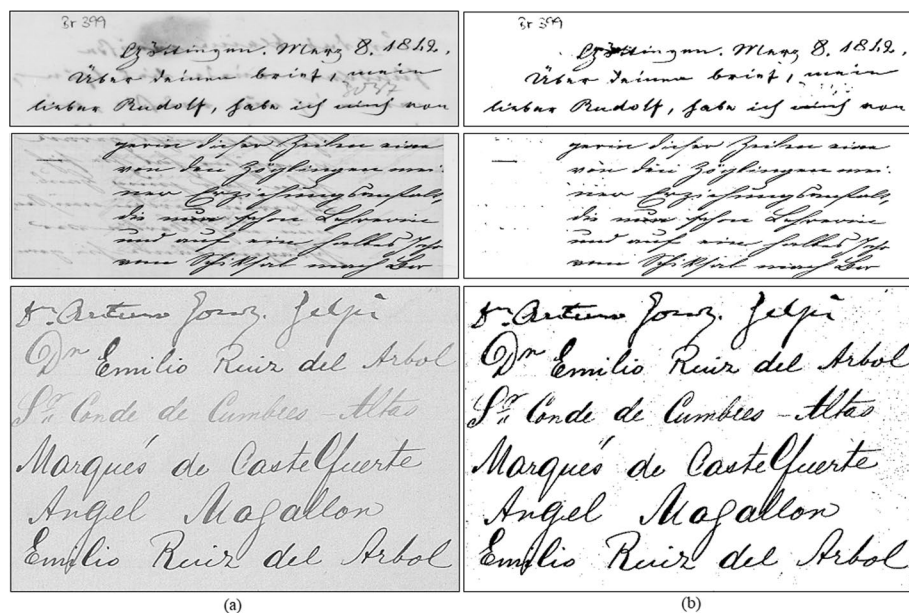 Br 399
Göttingen. Merz 8. 1812.
Über deinen brief, mein
lieber Rudolf, habe ich mich von
gerin dieser Zeilen eine
von den Zöglingen mei-
ner Erziehungsanstalt,
die nun schon Lehrerin
und auf ein halbes Jahr
vom Schiksal nach
Dn Emilio Ruiz del Arbol
Sr Conde de Cumbres-Altas
Marqués de Castelfuerte
Angel Magallon
Emilio Ruiz del Arbol
(a)
Br 399
Göttingen. Merz 8. 1812.
Über deinen brief, mein
lieber Rudolf, habe ich mich von
gerin dieser Zeilen eine
von den Zöglingen mei-
ner Erziehungsanstalt,
die nun schon Lehrerin
und auf ein halbes Jahr
vom Schiksal nach
Dn Emilio Ruiz del Arbol
Sr Conde de Cumbres-Altas
Marqués de Castelfuerte
Angel Magallon
Emilio Ruiz del Arbol
(b)